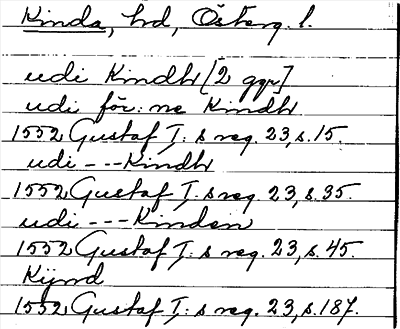 Kinda, hd, Österg. l.
udi Kindh [2 ggr]
udi för: ne Kindh
1552 Gustaf I: s reg. 23, s. 15.
udi - - - Kindh
1552 Gustaf I: s reg. 23, s. 35.
udi - - - Kinden
1552 Gustaf I: s reg. 23, s. 45.
Kijnd
1552 Gustaf I: s reg. 23, s. 187.